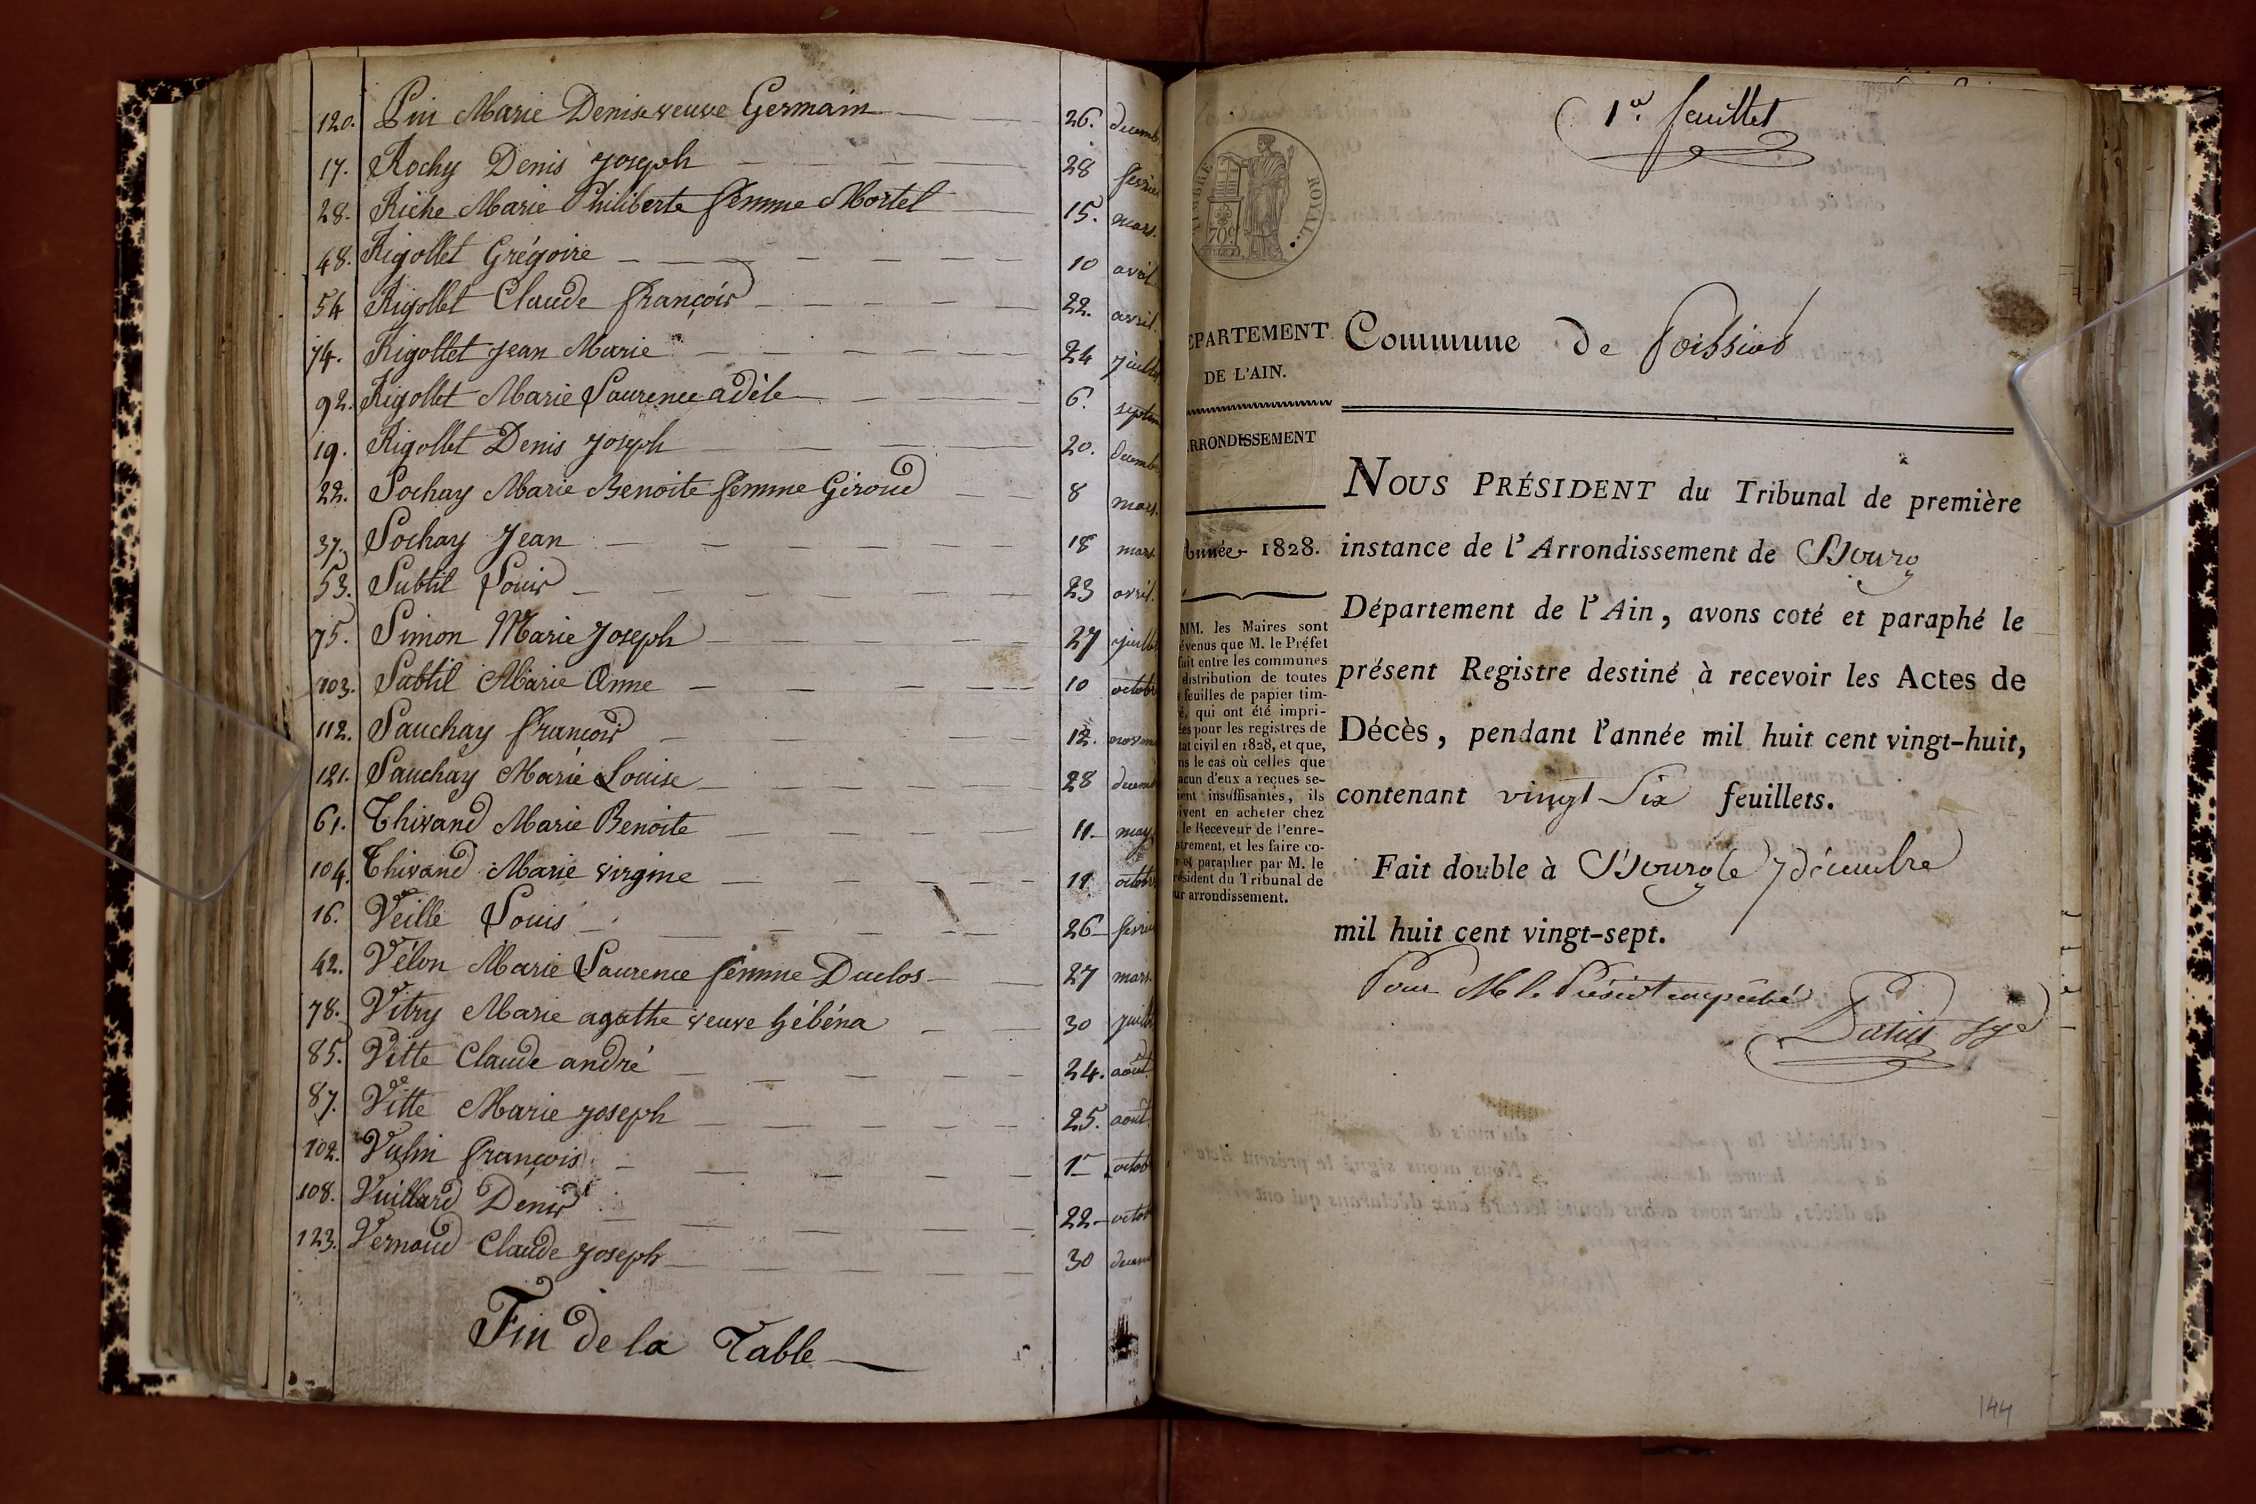 120. Pin Marie Denise veuve Germain 26. decemb
17. Rochy Denis joseph 28 fevrier
28. Riche Marie Philiberte femme Mortel 15. mars.
48. Rigollet Grégoire 10 avril
54 Rigollet Claude françois 22. avril.
74. Rigollet jean Marie 24 juillet
92. Rigollet Marie Laurence adèle 6. septem
19. Rigollet Denis joseph 20. decemb
22. Sochay Marie Benoite femme Giroud 8 mars.
37. Sochay Jean 18 mars
53. Subtil Louis 23 avril.
75. Simon Marie Joseph 27 juillet
103. Subtil Marie Anne 10 octob
112. Sauchay françois 12. novem
121. Sauchay Marie Louise 28 decemb
61. Thivand Marie Benoite 11 may
104. Thivand Marie virgine 11 octob
16. Veille Louis 26 fevrier
42. Vélon Marie Laurence femme Duclos 27 mars.
78. Vitry Marie agathe veuve hébéna 30 juillet
85. Vitte Claude andré 24. août
87. Vitte Marie joseph 25. aout
102. Vulin françois 1er octob
108. Vuillard Denis 22 octob
123. Vernoud Claude joseph 30 decem
Fin de la Table
1er feuillet
TIMBRE ROYAL
70c
EPARTEMENT
DE L'AIN.
RRONDISSEMENT
Année 1828.
MM. les Maires sont
évenus que M. le Préfet
fait entre les communes
distribution de toutes
feuilles de papier tim-
é, qui ont été impri-
ées pour les registres de
tat civil en 1828, et que,
ns le cas où celles que
acun d'eux a reçues se-
ient insuffisantes, ils
ivent en acheter chez
le Receveur de l'enre-
strement, et les faire co-
r et parapher par M. le
résident du Tribunal de
ur arrondissement.
Commune de Poissiat
NOUS PRÉSIDENT du Tribunal de première
instance de l'Arrondissement de Bourg
Département de l'Ain, avons coté et paraphé le
présent Registre destiné à recevoir les Actes de
Décès, pendant l'année mil huit cent vingt-huit,
contenant vingt Six feuillets.
Fait double à Bourg le 7 décembre
mil huit cent vingt-sept.
Pour M le Président empêché
144